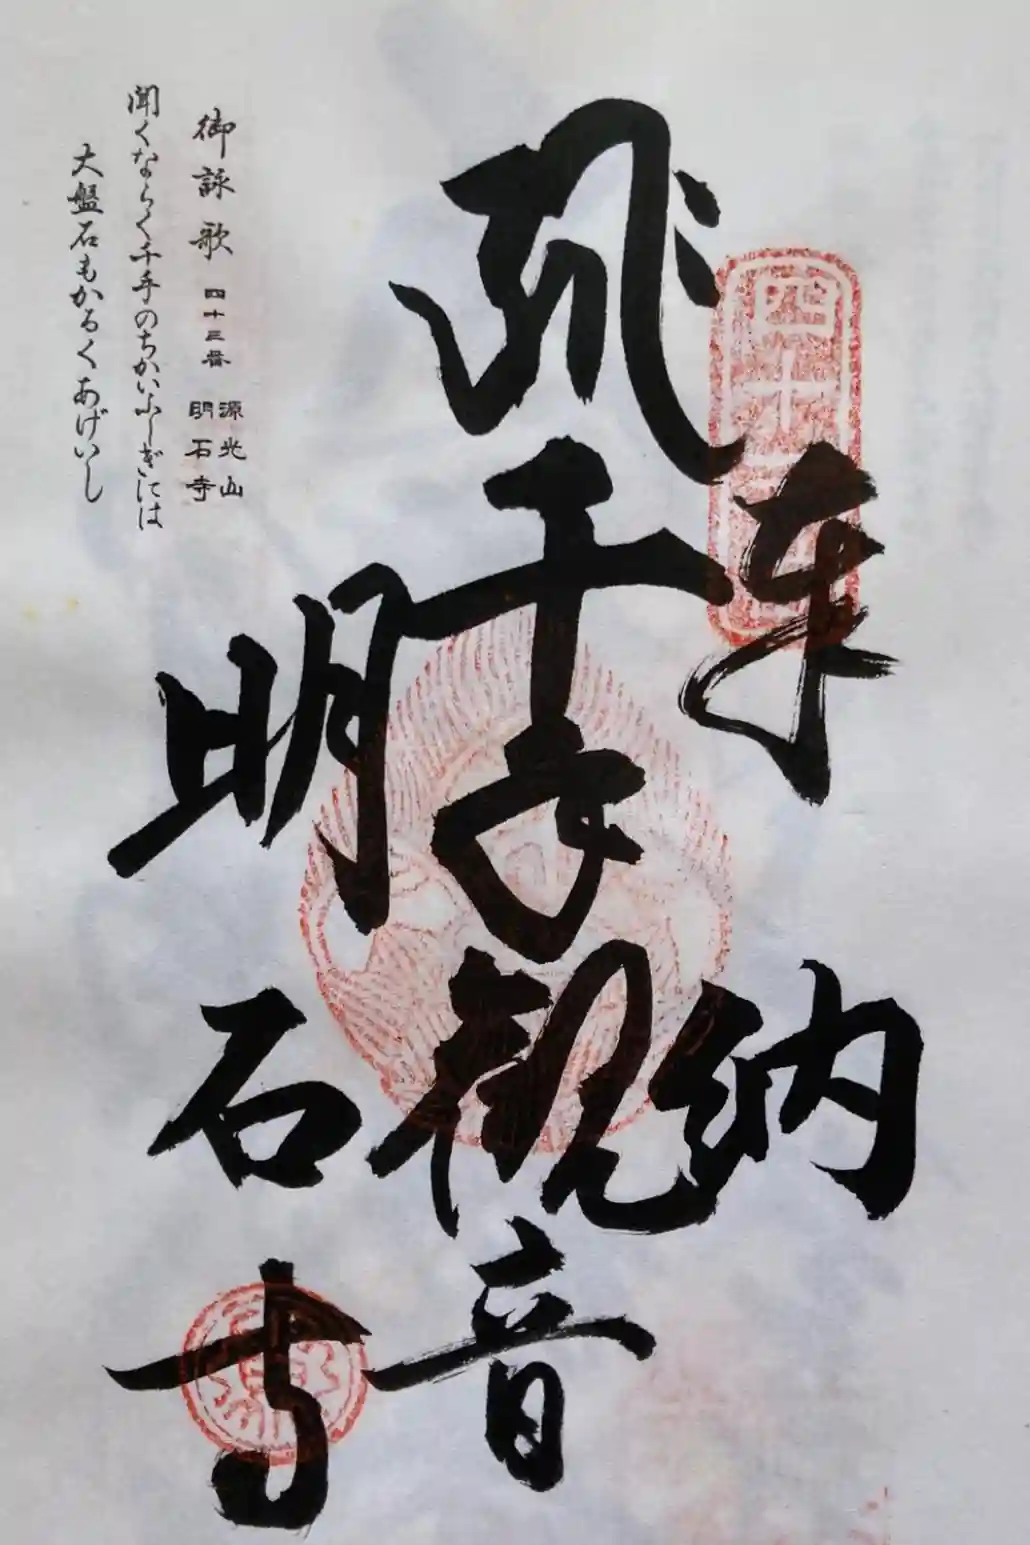 四十
奉納
千手観音
明石寺
御詠歌 四十三番 源光山 明石寺
聞くならく千手のちかいふしぎには
大盤石もかるくあげいし